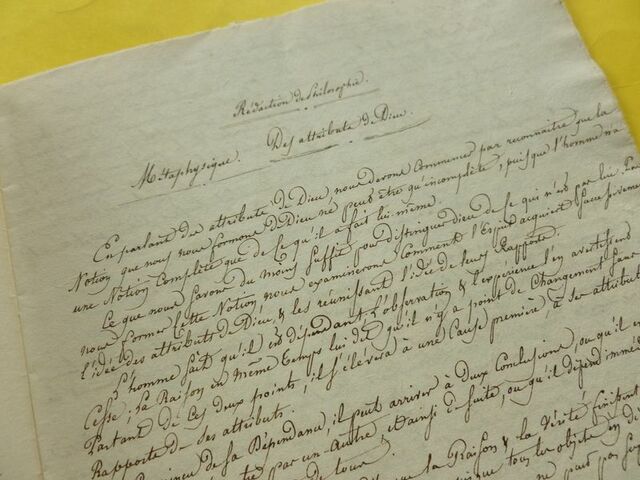 Rédaction de Philosophie.
Métaphysique. Des attributs de Dieu.
En parlant des attributs de Dieu, nous devons commencer par reconnaître que la
Notion que nous nous formons de Dieu ne peut être qu'incomplète, puisque l'homme n'a
une Notion Complète que de ce qu'il a fait lui même.
Ce que nous savons du moins suffit pour distinguer Dieu de ce qui n'est pas lui. Pour
nous former cette Notion, nous examinerons comment l'Esprit acquiert successivement
l'idée des attributs de Dieu, & les réunissant l'idée de leurs Rapports.
1° L'homme sait qu'il est dépendant. L'observation & l'expérience l'en avertissent
Cesse; la Raison en même temps lui dit qu'il n'y a point de Changement sans
Partant de ces deux points, il s'élèvera à une Cause première & à ses attributs
Rapports des attributs.
de sa Dépendance, il peut arriver à deux Conclusions, ou qu'il est
par un autre, et ainsi de suite, ou qu'il dépend immé
de tout.
que la Raison & la Vérité finissent
que tous les objets en de
ne par